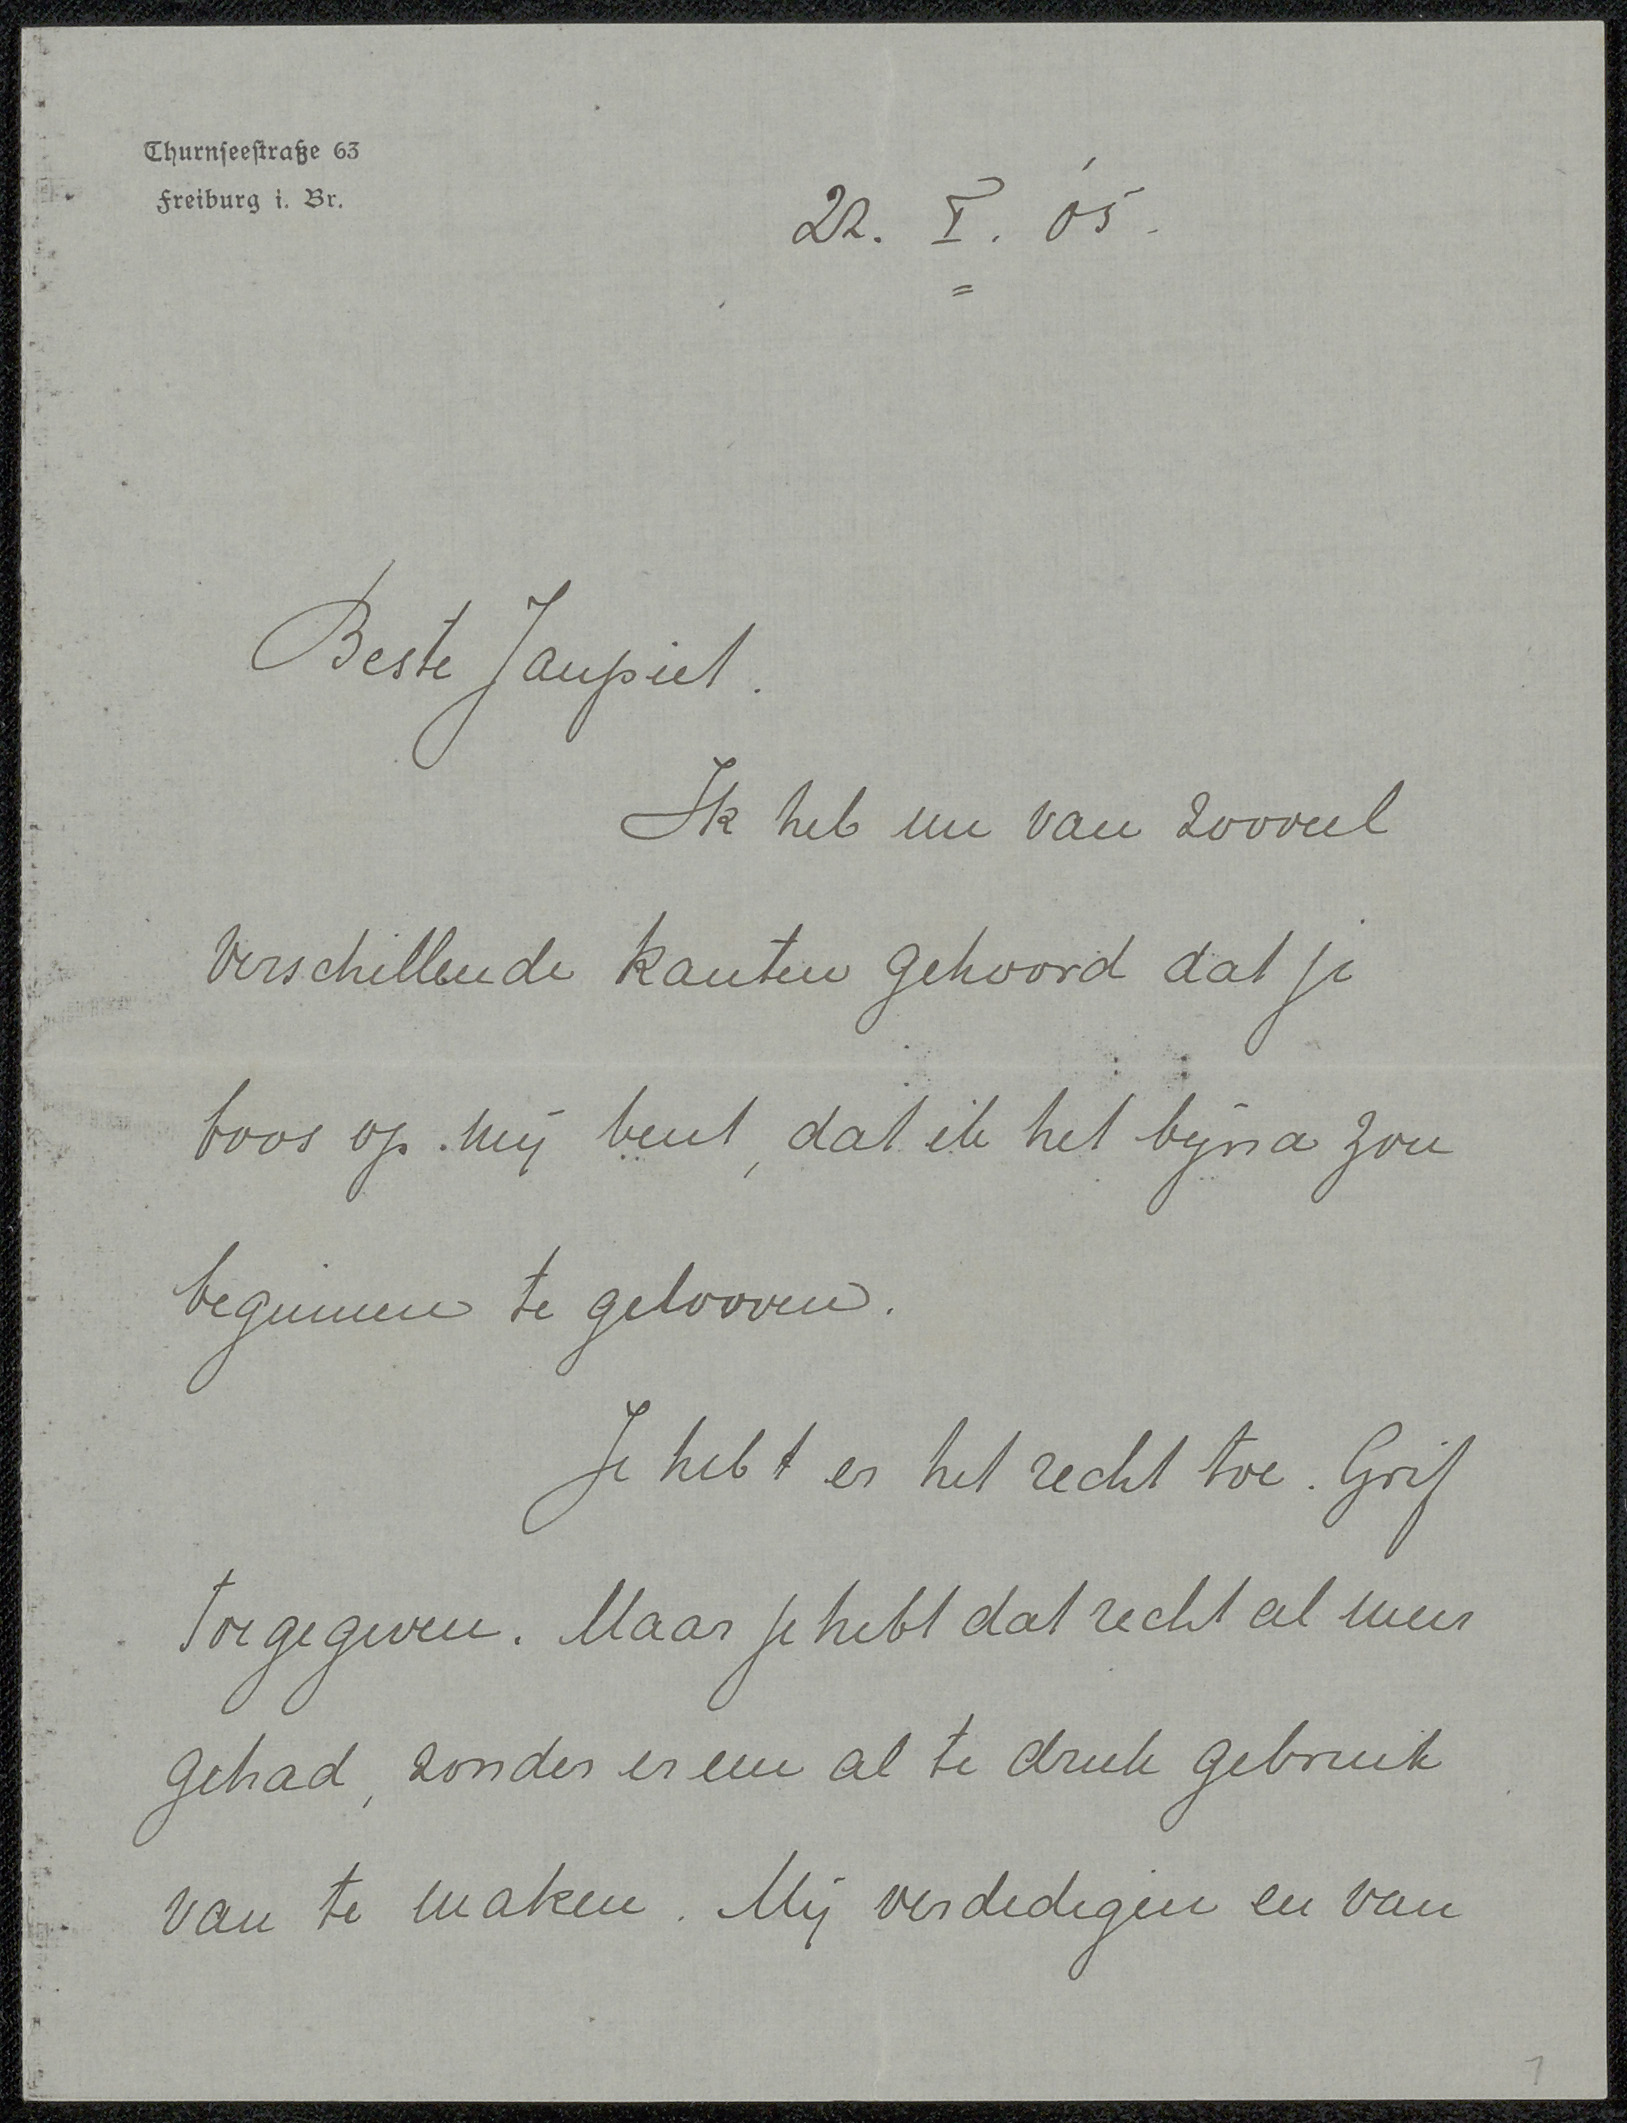 Thurnseestraße 63
Freiburg i. Br.
22. I. 05.
Beste Janpiet.
Ik heb nu van zooveel
verschillende kanten gehoord dat je
boos op mij bent, dat ik het bijna zou
beginnen te gelooven.
Je hebt er het recht toe. Grif
toegegeven. Maar je hebt dat recht al meer
gehad, zonder er een al te druk gebruik
van te maken. Mij verdedigen en van
1